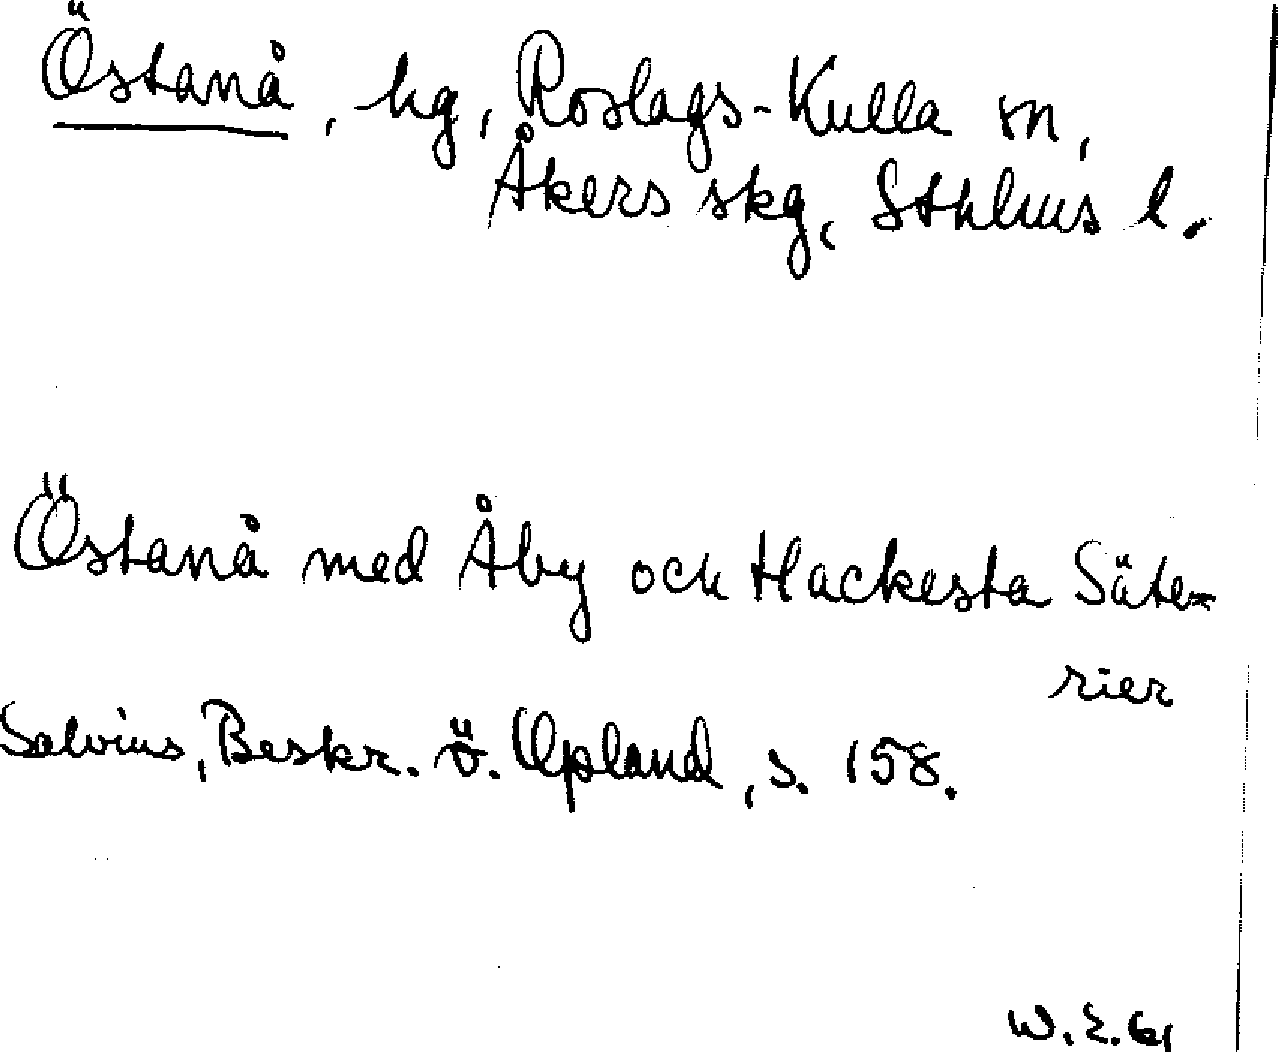 Östanå, hg, Roslags-Kulla sn,
Åkers skg, Sthlms l.
Östanå med Åby och Hackesta Säte-
rier
Salvius, Beskr. ö. Upland, s. 158.
W. E. 61